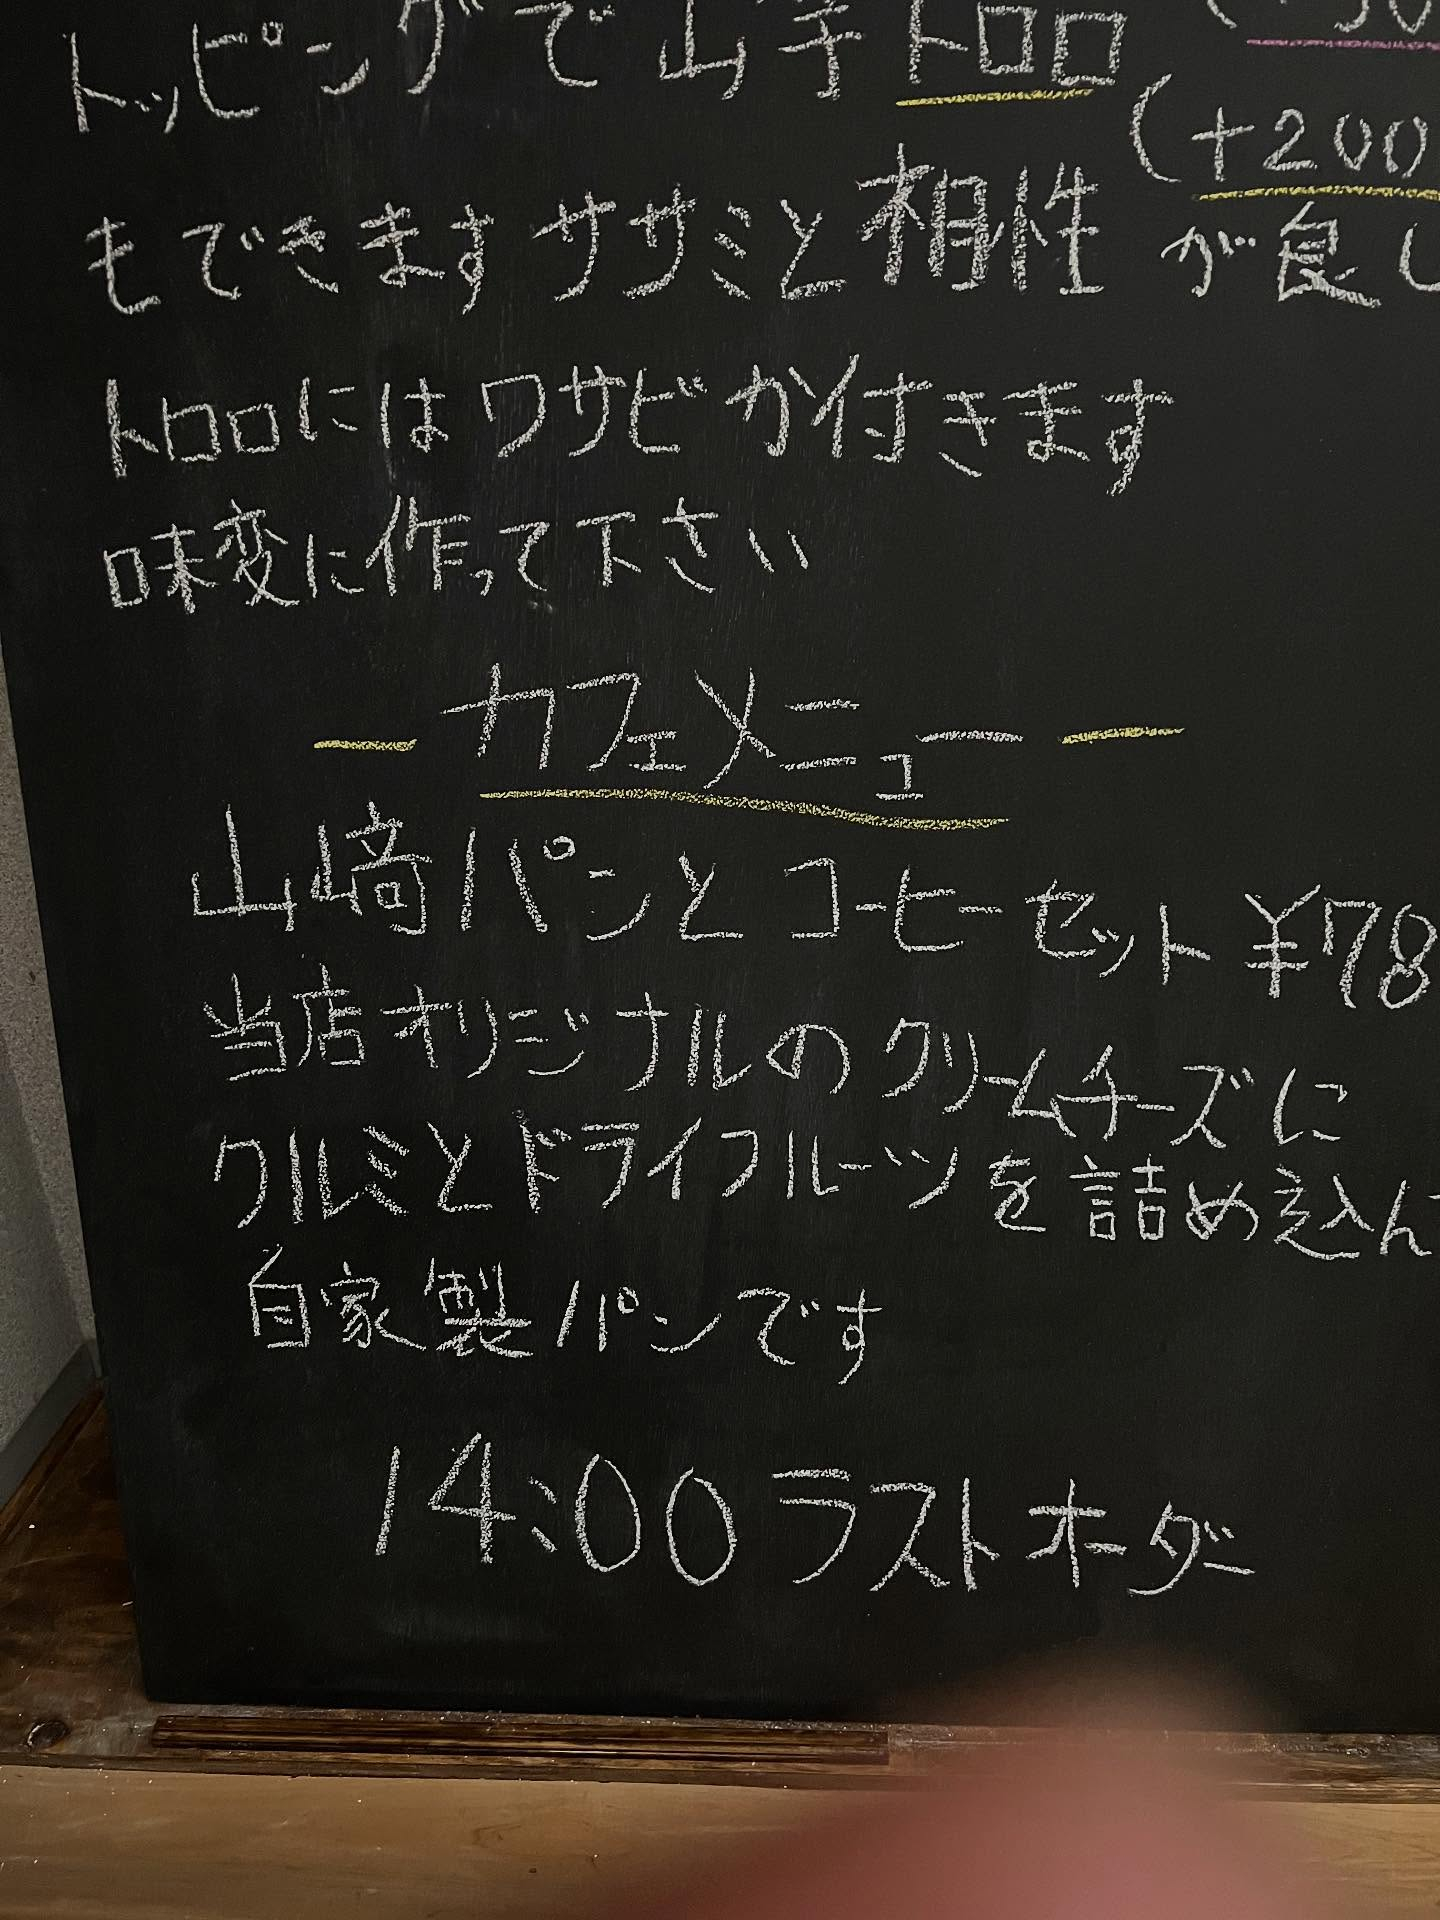 トッピングで山芋トロロ
(+200
もできますササミと相性が良し
トロロにはワサビが付きます
味変に作って下さい
— カフェメニュー —
山﨑パンとコーヒーセット ¥78
当店オリジナルのクリームチーズに
クルミとドライフルーツを詰め込ん
自家製パンです
14:00ラストオーダー